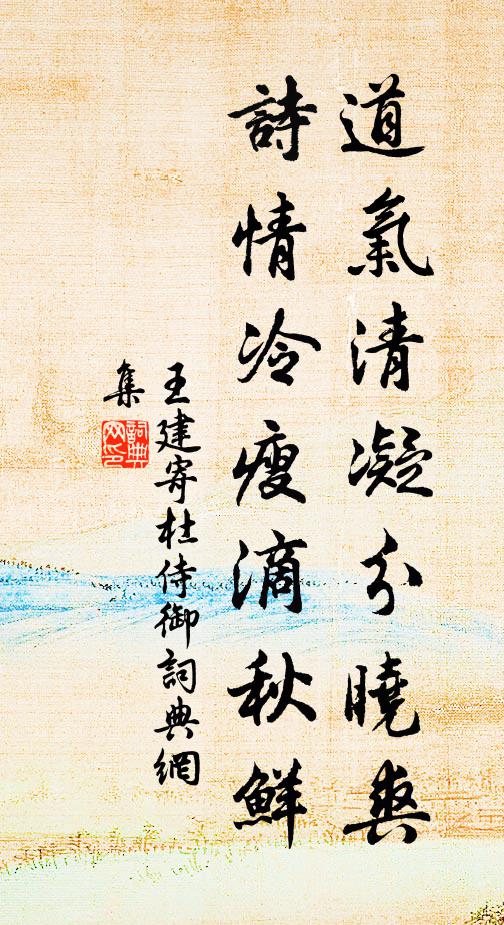 道氣清凝分曉爽
詩情冷瘦滴秋鮮
王建寄杜侍御詞典網
集
詞典
网印